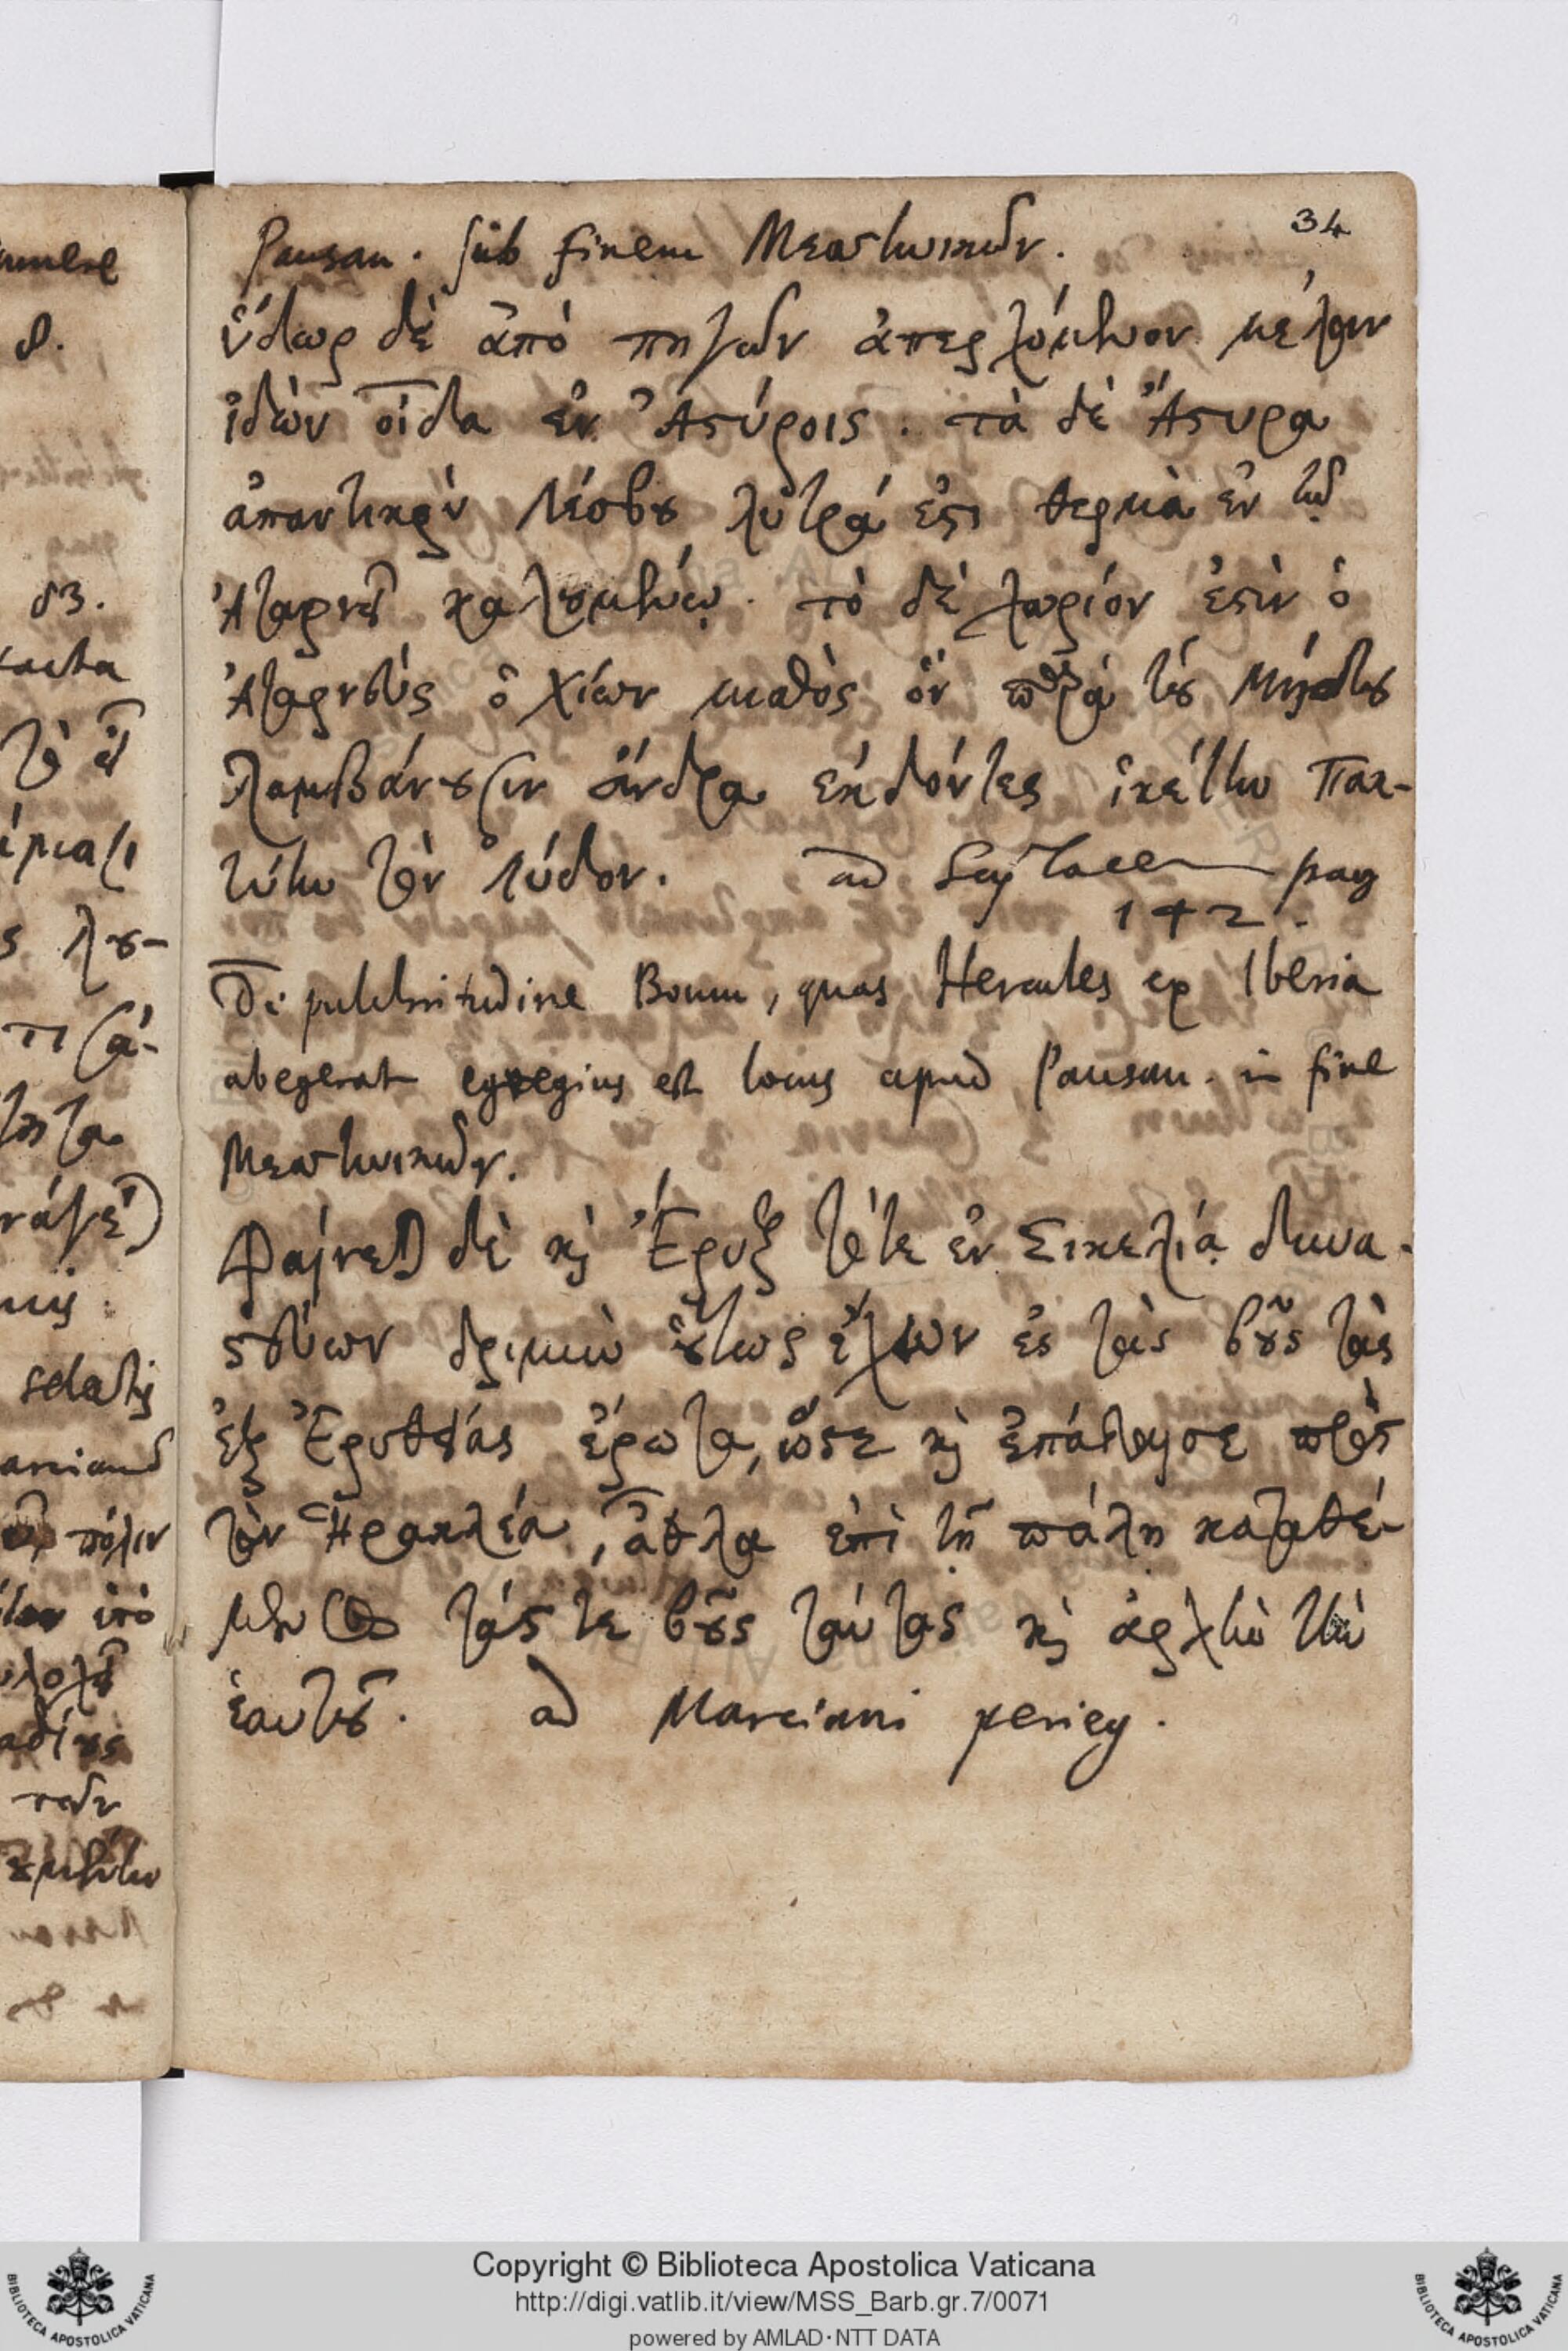 34
Pausan. sub finem Μεσσηνικῶν.
ὕδωρ δὲ ἀπὸ πηγῶν ἀπερχόμενον μέλαν
ἰδὼν οἶδα ἐν Ἀστύροις. τὰ δὲ Ἄστυρα
ἀπαντικρὺ Λέσβου λουτρά ἐστι θερμὰ ἐν τῷ
Ἀταρνεῖ καλουμένῳ. τὸ δὲ χωρίον ἐστὶν ὁ
Ἀταρνεύς ὁ Χίων μισθὸς ὃν παρὰ τοῦ Μήδου
λαμβάνουσιν ἄνδρα ἐκδόντες ἱκέτην Πακ-
τύην τὸν Λύδον. ad Scylacem pag
142.
De pulchritudine Boum, quas Hercules ex Iberia
abegerat egregius est locus apud Pausan. in fine
Μεσσηνικῶν.
Φαίνεται δὲ καὶ Ἔρυξ τότε ἐν Σικελίᾳ δυνα-
στεύων δριμὺν οὕτως ἔχων ἐς τὰς βοῦς τὰς
ἐξ Ἐρυθείας ἔρωτα, ὥστε καὶ ἐπάλαισε πρὸς
τὸν Ἡρακλέα, ἆθλα ἐπὶ τῇ πάλῃ καταθέ-
μενος τάς τε βοῦς ταύτας καὶ ἀρχὴν τὴν
ἑαυτοῦ. ad Marciani perieg.
Copyright © Biblioteca Apostolica Vaticana
http://digi.vatlib.it/view/MSS_Barb.gr.7/0071
powered by AMLAD·NTT DATA
BIBLIOTECA APOSTOLICA VATICANA
BIBLIOTECA APOSTOLICA VATICANA